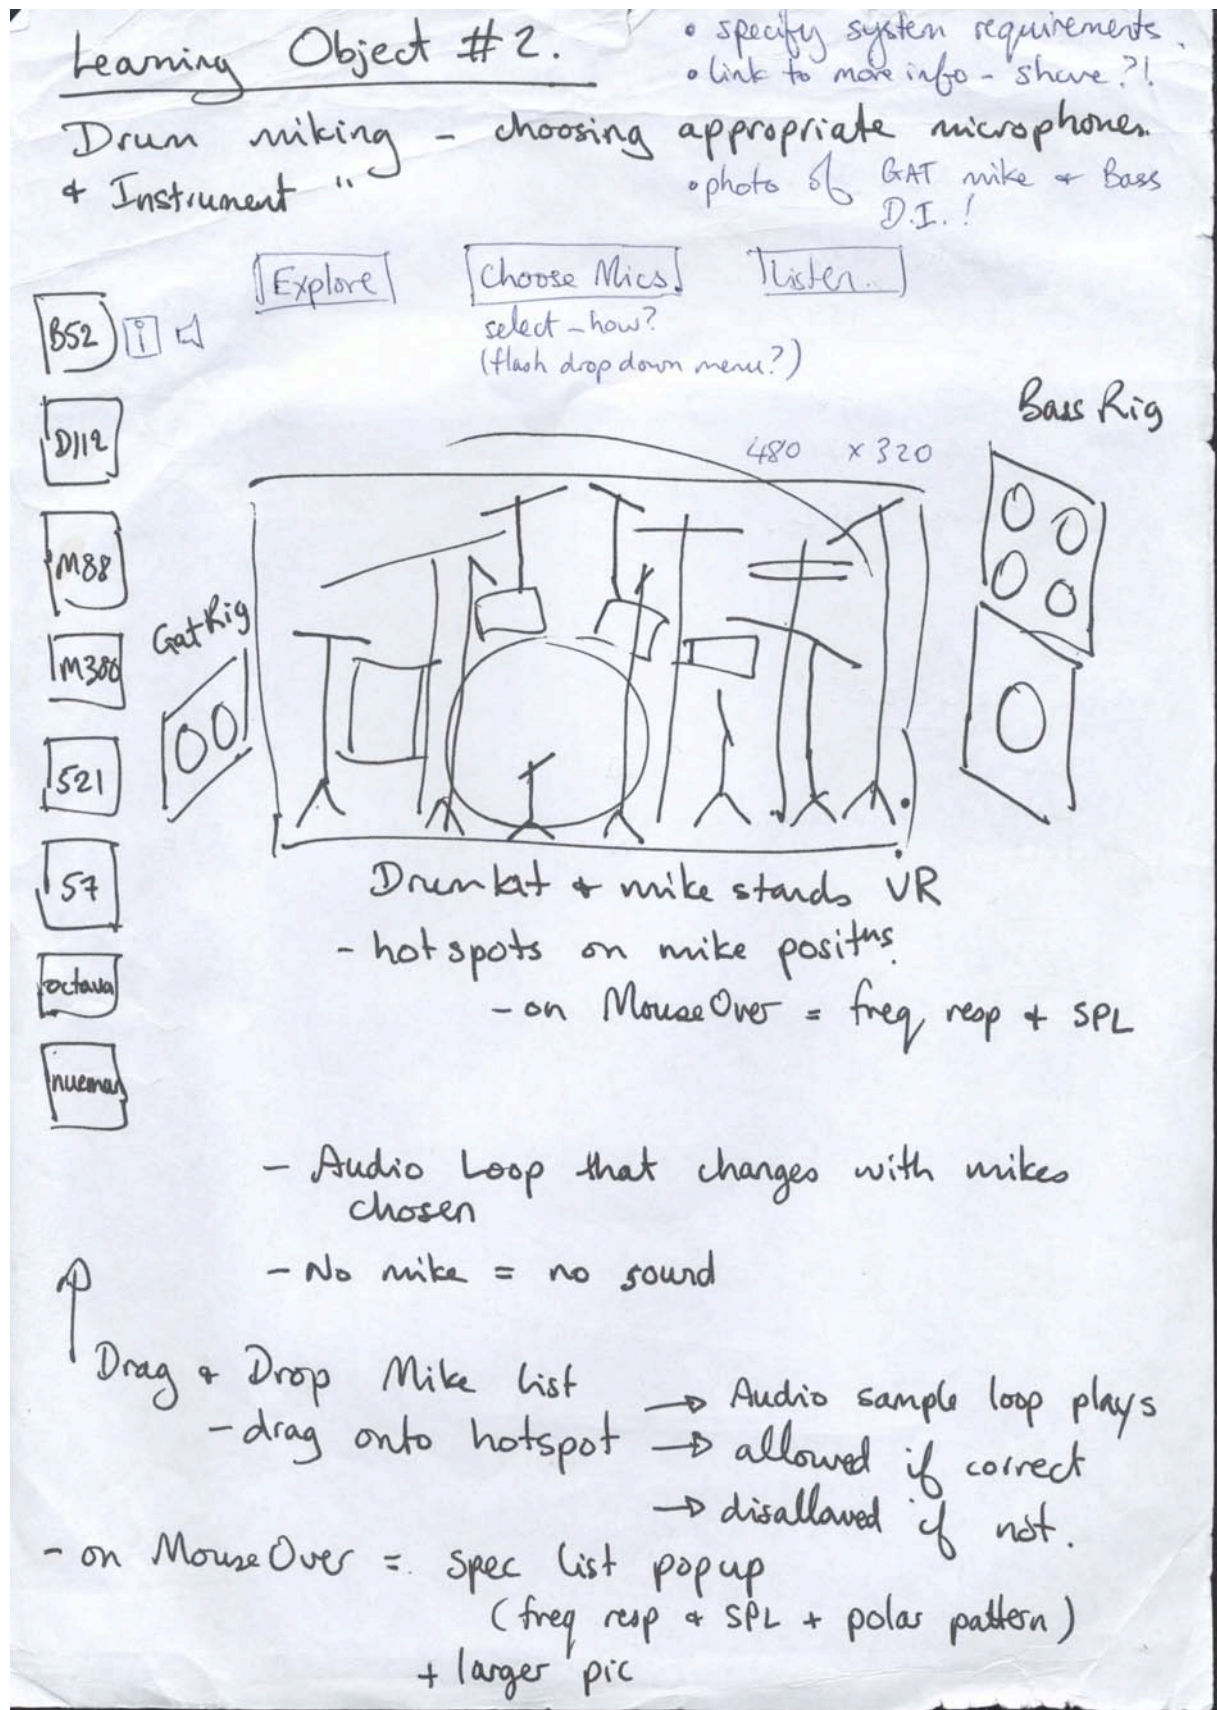 Learning Object #2.
• specify system requirements.
• link to more info - share?!
Drum miking - choosing appropriate microphones.
+ Instrument "
• photo of GAT mike + Bass
D.I.!
Explore
Choose Mics.
Listen..
select - how?
(flash drop down menu?)
B52
i
D112
M88
M380
521
57
octava
nueman
Bass Rig
480 x 320
Gat Rig
Drumkat + mike stands VR
- hot spots on mike positns.
- on MouseOver = freq resp + SPL
- Audio Loop that changes with mikes
chosen
- No mike = no sound
Drag + Drop Mike list
- drag onto hotspot
→ Audio sample loop plays
→ allowed if correct
→ disallowed if not.
- on MouseOver = spec list popup
(freq resp + SPL + polar pattern)
+ larger pic